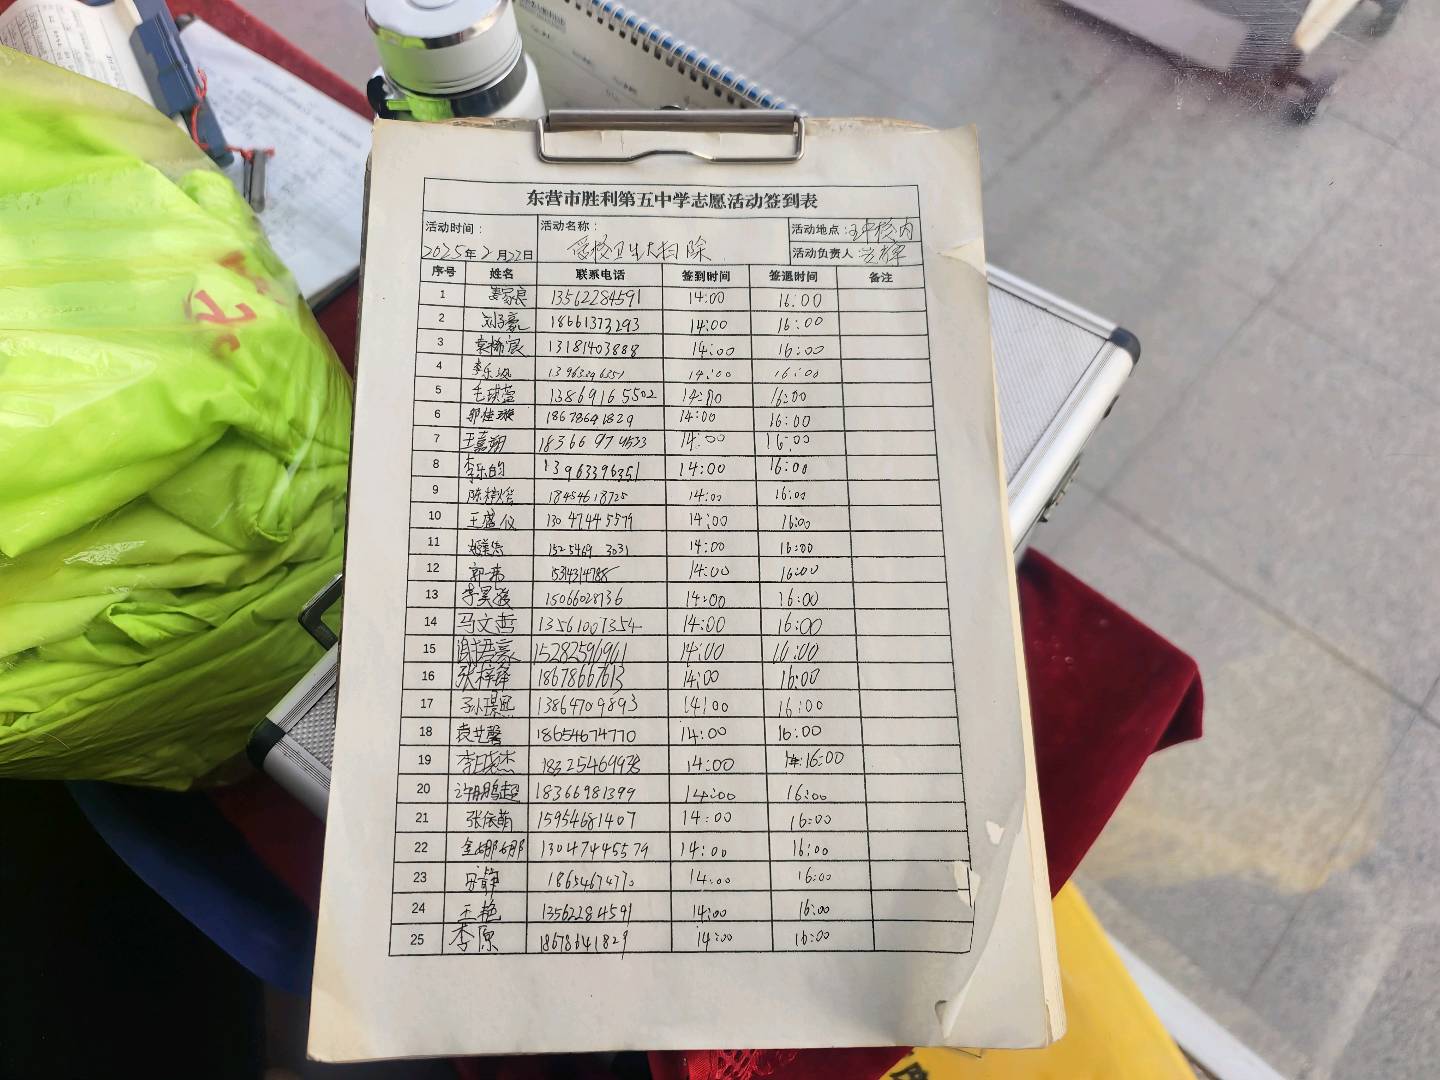 东营市胜利第五中学志愿活动签到表
活动时间： 活动名称： 活动地点：五中校内
2025年2月22日 爱校卫生大扫除 活动负责人
序号 姓名 联系电话 签到时间 签退时间 备注
1 姜家良 13562284591 14:00 16:00
2 刘子豪 18661373293 14:00 16:00
3 袁梓宸 13181403888 14:00 16:00
4 李乐 13963396351 14:00 16:00
5 毛琪莹 13869165502 14:00 16:00
6 郭桂璇 18678641829 14:00 16:00
7 王嘉翔 18366974533 14:00 16:00
8 李乐韵 13963396351 14:00 16:00
9 陈梓 18454618725 14:00 16:00
10 王盛仪 13047445579 14:00 16:00
11 15254693031 14:00 16:00
12 郭一苇 15314314788 14:00 16:00
13 李昊 15066028736 14:00 16:00
14 马文哲 13561007354 14:00 16:00
15 谢语豪 15282596961 14:00 16:00
16 张梓锋 18678667613 14:00 16:00
17 孙璟熙 13864709893 14:00 16:00
18 袁艺馨 18654674770 14:00 16:00
19 李晓杰 14:00 16:00
20 许鹏超 18366981399 14:00 16:00
21 张依萌 15954681407 14:00 16:00
22 金娜娜 13047445579 14:00 16:00
23 宋静 18654674770 14:00 16:00
24 王艳 13562284591 14:00 16:00
25 李原 18678641829 14:00 16:00